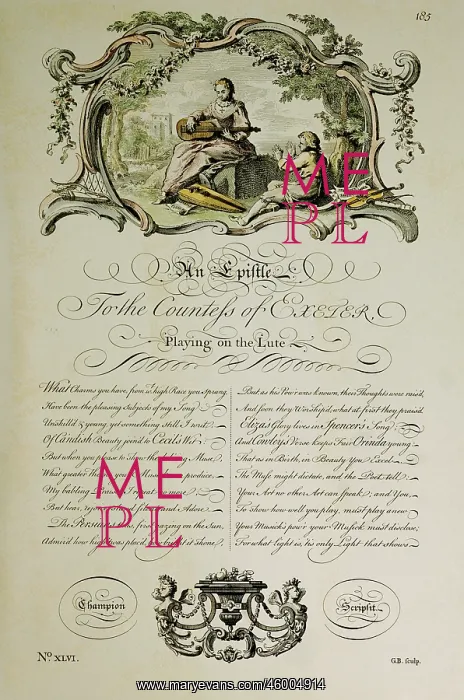 185
ME
PL
An Epistle
To the Countess of EXETER,
Playing on the Lute
What Charms you have, from wt. high Race you Sprang
Have been the pleasing Subjects of my Song
Unskill'd & young, yet something still I writ,
Of Candish Beauty joind to Cecil's Wit
But when you please to show the Muse,
What greater you produce,
My babling I repeat no more
But hear, and Adore
The Persians, first gazing on the Sun,
Admir'd how high was plac'd, how bright it Shone;
But as his Pow'r was known, their Thoughts were rais'd,
And soon they Worship'd, what at first they prais'd
Eliza's Glory lives in Spencer's Song
And Cowley's Verse keeps Fair Orinda young
That as in Birth, in Beauty you Excel
The Muse might dictate, and the Poet tell
Your Art no other Art can Speak; and You
To show how well you play, must play anew
Your Musick's pow'r your Musick must disclose;
For what Light is, tis only Light that shows
ME
PL
Champion
Scripsit
No. XLVI.
G.B. sculp.
www.maryevans.com/46004914